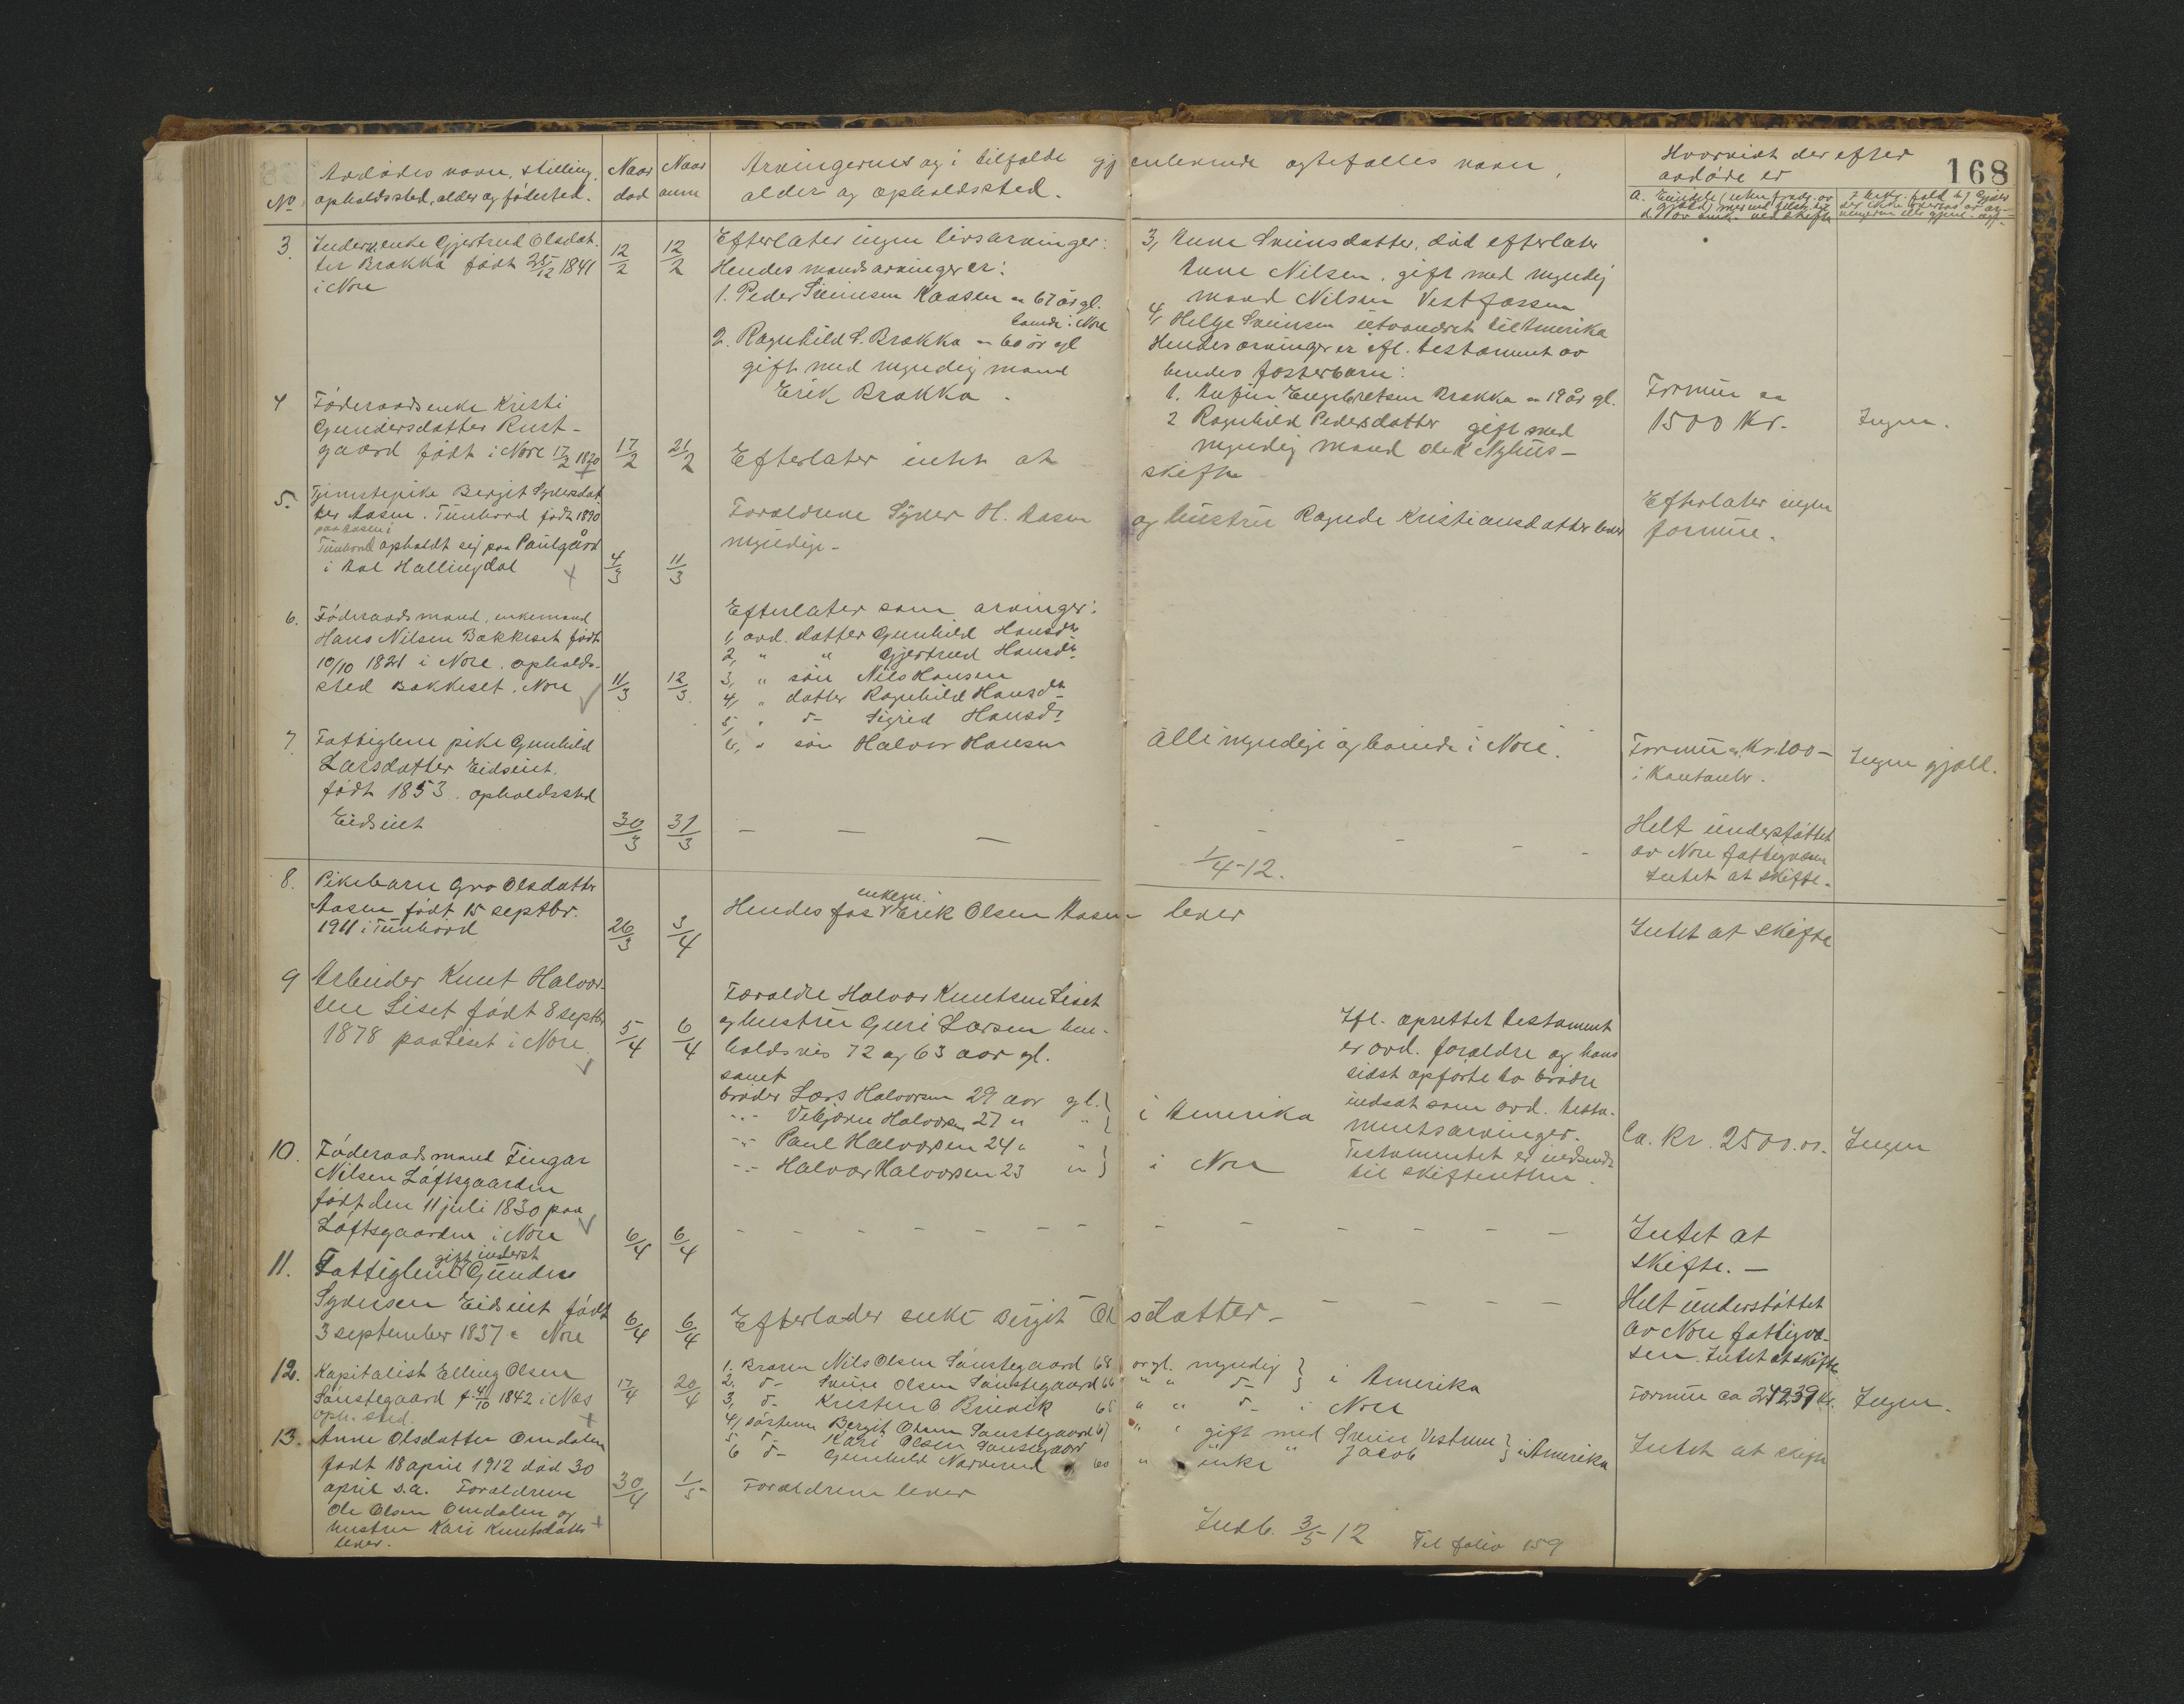 168
No
Avdødes navn, stilling,
opholdssted, alder og fødested.
Naar
død
Naar
anm
Arvingernes og i tilfælde gjenlevende ægtefælles navn,
alder og opholdssted.
Hvorvidt der efter
avdøde er
3.
Inderstenke Gjertrud Olsdat-
ter Brække født 25/12 1841
i Nore
12/2
12/2
Efterlater ingen livsarvinger:
Hendes mands arvinger er:
1. Peder Sveinsen Kaasen ca 67 år gl.
boende i Nore
2. Ragnhild S. Brække ca 60 år gl
gift med myndig mand
Erik Brække.
3, Anne Sveinsdatter, død efterlater
Anne Nilsen, gift med myndig
mand Nilsen Vestfossen
4, Helge Sveinsen utvandret til Amerika
Hendes arvinger er efl. testament av
hendes fosterbarn:
1. Anfin Engebretsen Brække ca 19 år gl.
2 Ragnhild Pedersdatter gift med
myndig mand Ole K Nyhus-
Formue ca
1500 Kr.
Ingen.
4
Føderaadsenke Kristi
Gundersdatter Rust-
gaard født i Nore 17/2 1820
17/2
21/2
Efterlater intet at
skifte
5.
Tjenestepike Bergit Syversdat
ter Aasen. Tunhovd født 1890
paa Aasen i
Tunhovd opholdt sig paa Paulgård
i Aal Hallingdal
4/3
11/3
Forældrene Syver H. Aasen
og hustru Ragnde Kristiansdatter lever
myndige-
Efterlater ingen
formue.
6.
Føderaadsmand, enkemand
Hans Nilsen Bakkeset født
10/10 1821 i Nore. opholds-
sted Bakkeset, Nore
11/3
12/3.
Efterlater som arvinger:
1, avd. datter Gunhild Hansdtr
2, " " Gjertrud Hansdtr
3, " søn Nils Hansen
4, " datter Ragnhild Hansdtr
5, " d- Sigrid Hansdtr
6, " søn Halvor Hansen
alle myndige og boende i Nore.
Formue Kr. 100-
i Kontanter.
Ingen gjæld.
7.
Fattiglem pike Gunhild
Larsdatter Eidsnut.
født 1853. opholdssted
Eidsnut
30/3
31/3
- - -
- - - - -
Helt understøttet
av Nore fattigvæsen
Intet at skifte.
1/4-12.
8.
Pikebarn Gro Olsdatter
Aasen født 15 septbr.
1911 i Tunhovd
26/3
3/4
enkem.
Hendes far Erik Olsen Aasen lever
Intet at skifte
9
Arbeider Knut Halvor-
sen Liset født 8 septbr
1878 paa Liset i Nore.
5/4
6/4
Forældre Halvor Knutsen Liset
og hustru Guri Larsen hen-
holdsvis 72 og 63 aar gl.
samt
brødre Lars Halvorsen 29 aar gl.
-"- Vebjørn Halvorsen 27 " "
-"- Paul Halvorsen 24 " "
-"- Halvor Halvorsen 23 "
i Amerika
i Nore
Ifl. oprettet testament
er avd. forældre og hans
sidst opførte to brødre
indsat som avd. testa-
mentsarvinger.
Testamentet er indsendt
til skifteretten.
Ca. Kr. 2500.00.
Ingen
10.
Føderaadsmand Tingar
Nilsen Løftsgaarden
født den 11 juli 1830 paa
Løftsgaarden i Nore
6/4
6/4
- - - - - - -
- - - - - -
Intet at
skifte. -
11.
gift inderst
Fattiglem Gunder
Syversen Eidsnut født
3 september 1837 i Nore
6/4
6/4
Efterlader enke Bergit Olsdatter-
- - - -
Helt understøttet
av Nore fattigvæ-
sen. Intet at skifte
12.
Kapitalist Elling Olsen
Sønstegaard f. 4/10 1842 i Næs
oph. sted.
17/4
20/4
1. Broren Nils Olsen Sønstegaard 68 år gl. myndig
2. d- Svein Olsen Sønstegaard 66 " " d-
i Amerika
3, d- Kristen O Bruvik 65 " " d- i Nore
4, søsteren Bergit Olsen Sønstegaard 67 " " gift med Svein Vestrum
5 d- Kari Olsen Sønstegaard
6 d- Gunhild Narverud 60 " enke " Jacob
i Amerika
Formue ca 27239 kr.
Ingen.
13.
Anne Olsdatter Omdalen
født 18 april 1912 død 30
april s.a. Forældrene
Ole Olsen Omdalen og
hustru Kari Knutsdatter
lever.
30/4
1/5
Forældrene lever
Intet at skifte
Indb. 3/5 12
Til folio 159